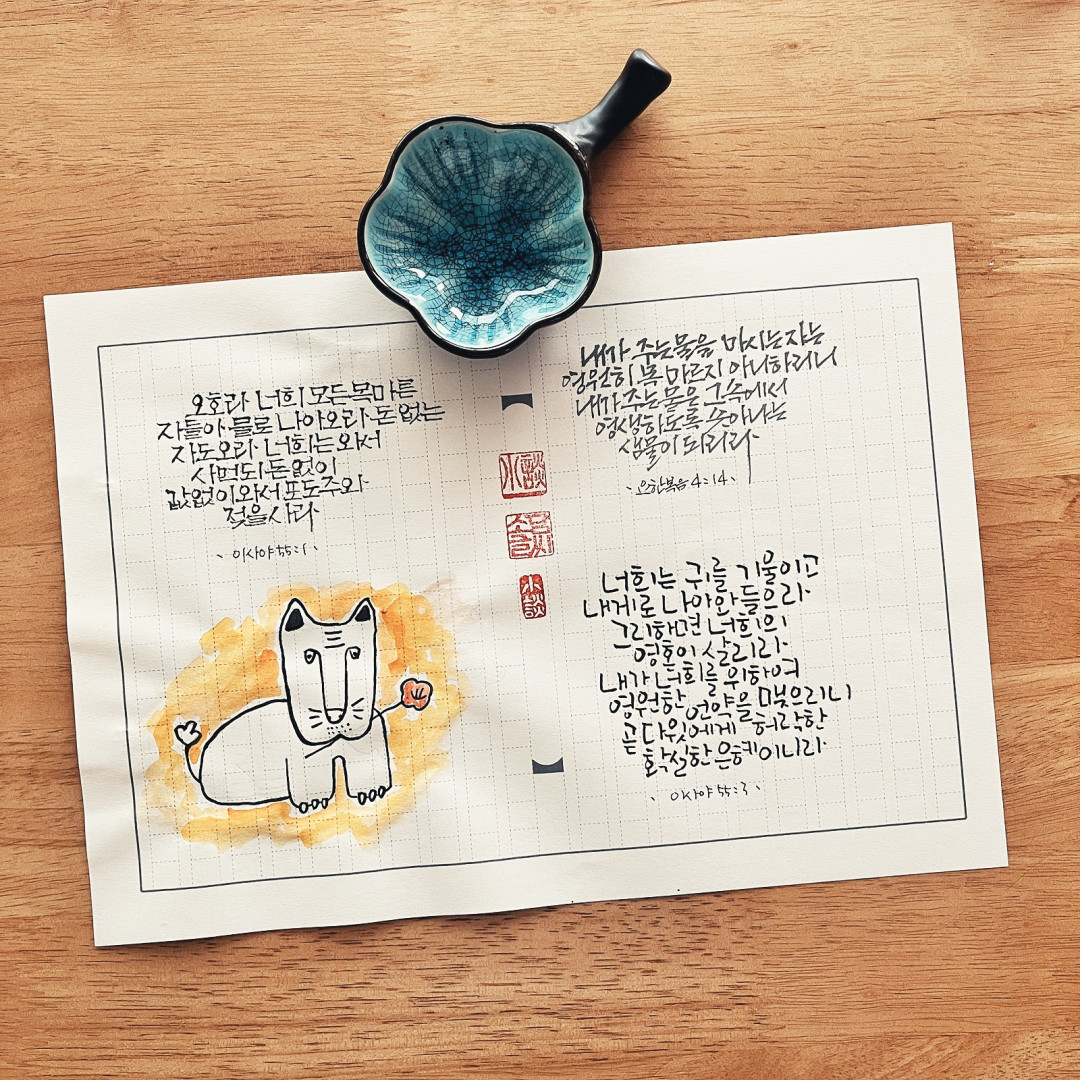 오호라 너희 모든 목마른
자들아 물로 나아오라 돈 없는
자도 오라 너희는 와서
사먹되 돈 없이
값없이 와서 포도주와
젖을 사라
이사야 55:1
내가 주는 물을 마시는 자는
영원히 목 마르지 아니하리니
내가 주는 물은 그 속에서
영생하도록 솟아나는
샘물이 되리라
요한복음 4:14
小談
소담
小談
너희는 귀를 기울이고
내게로 나아와 들으라
그리하면 너희의
영혼이 살리라
내가 너희를 위하여
영원한 언약을 맺으리니
곧 다윗에게 허락한
확실한 은혜이니라
이사야 55:3